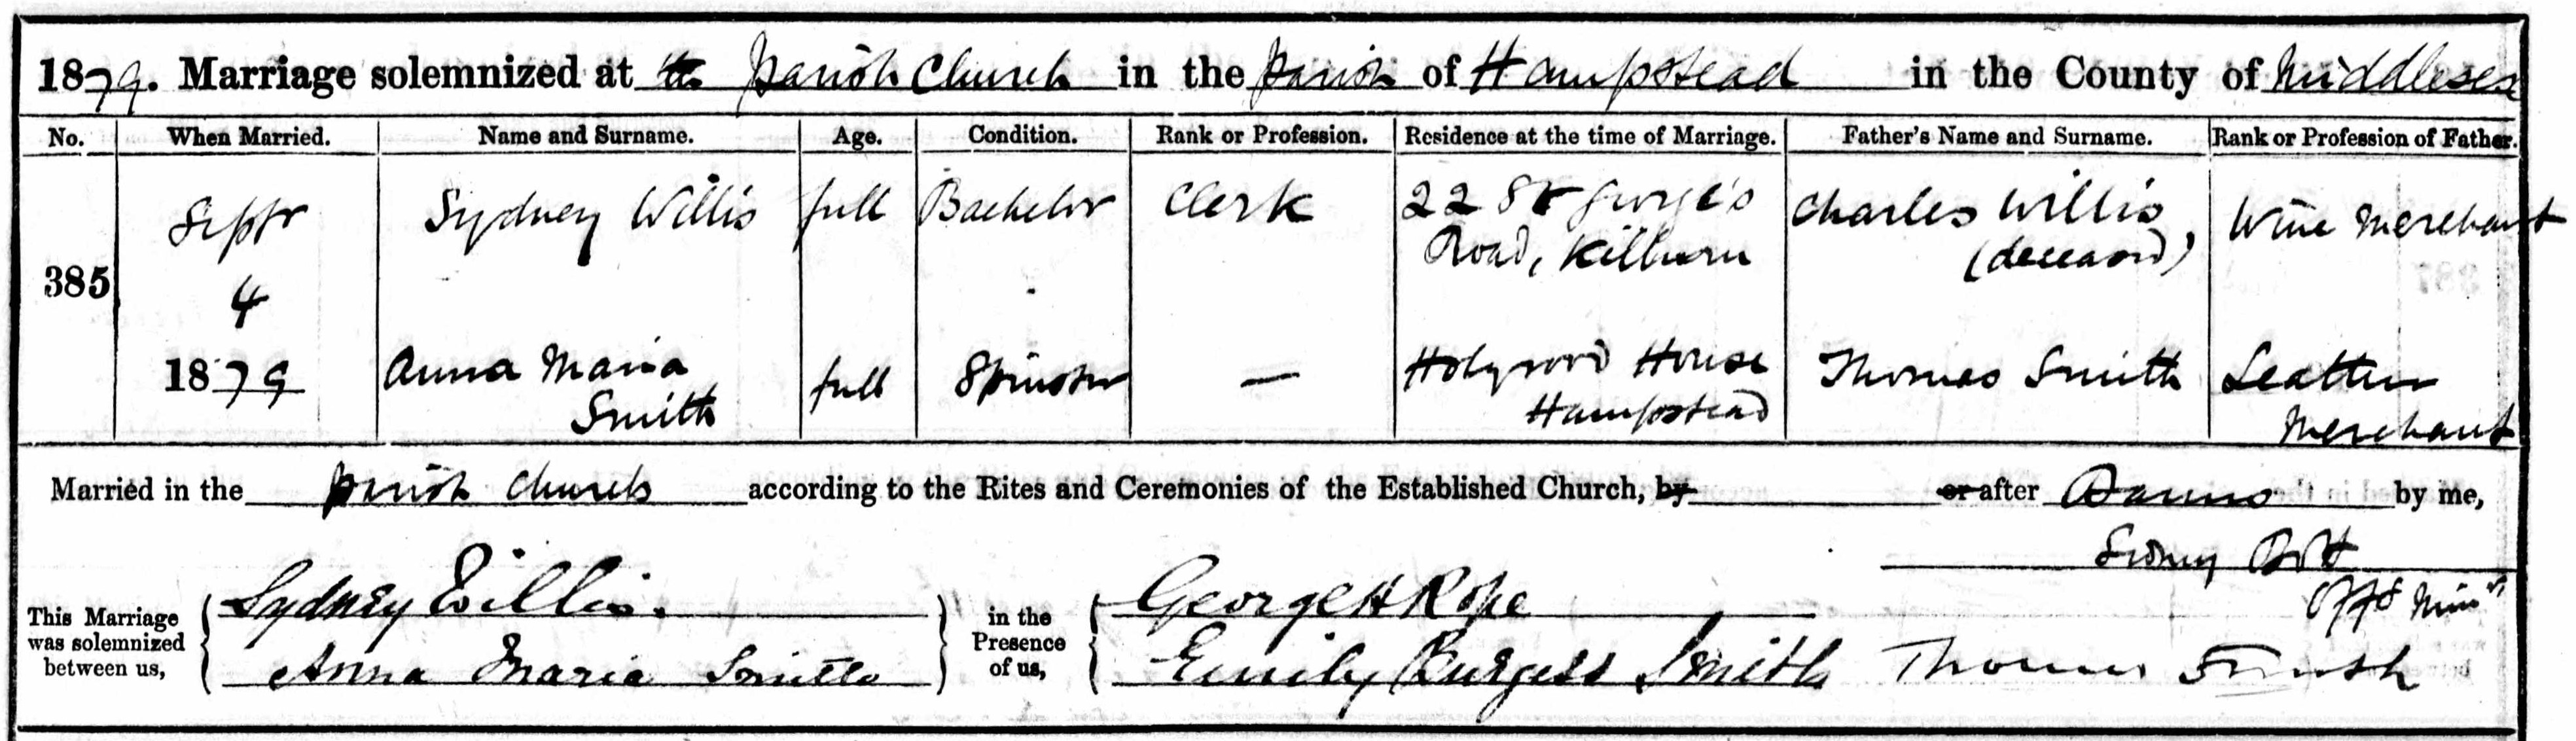 1879. Marriage solemnized at the Parish Church in the Parish of Hampstead in the County of Middlesex
No. When Married. Name and Surname. Age. Condition. Rank or Profession. Residence at the time of Marriage. Father's Name and Surname. Rank or Profession of Father.
385
Septr
4
1879
Sydney Willis full Bachelor Clerk 22 St George's
Road, Kilburn
Charles Willis
(deceased)
Wine Merchant
Anna Maria
Smith
full Spinster — Holyrood House
Hampstead
Thomas Smith Leather
Merchant
Married in the parish church according to the Rites and Ceremonies of the Established Church, by or after Banns by me,
Sidney Bott
Offg Minr
This Marriage
was solemnized
between us,
Sydney Willis.
Anna Maria Smith
in the
Presence
of us,
George H Rope
Emily Burgess Smith Thomas Smith